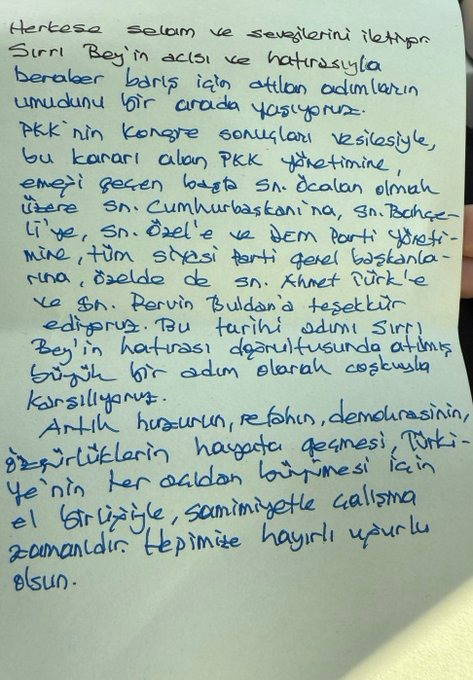 Herkese selam ve sevgilerini iletiyor.
Sırrı Bey'in acısı ve hatırasıyla
beraber barış için atılan adımların
umudunu bir arada yaşıyoruz.
PKK'nin kongre sonuçları vesilesiyle,
bu kararı alan PKK yönetimine,
emeği geçen başta Sn. Öcalan olmak
üzere Sn. Cumhurbaşkanı'na, Sn. Bahçe-
li'ye, Sn. Özel'e ve DEM Parti Yöneti-
mine, tüm siyasi parti genel başkanla-
rına, özelde de Sn. Ahmet Türk'e
ve Sn. Pervin Buldan'a teşekkür
ediyoruz. Bu tarihi adımı Sırrı
Bey'in hatırası doğrultusunda atılmış
büyük bir adım olarak coşkuyla
karşılıyoruz.
Artık huzurun, refahın, demokrasinin,
özgürlüklerin hayata geçmesi, Türki-
ye'nin her açıdan büyümesi için
el birliğiyle, samimiyetle çalışma
zamanıdır. Hepimize hayırlı uğurlu
olsun.